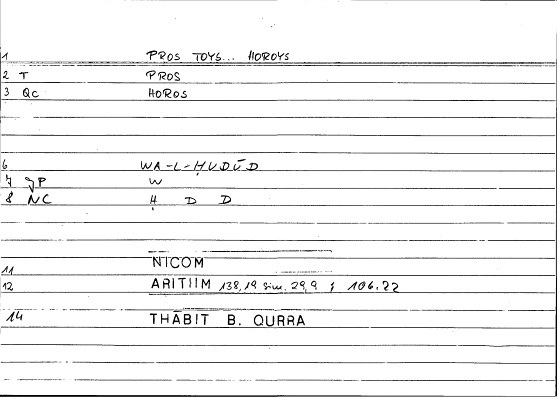 1 PROS TOYS... HOROYS
2 T PROS
3 Qc HOROS
6 WA-L-ḤUDŪD
7 JP W
8 NC Ḥ D D
11 NICOM
12 ARITIIM 138,19 sim. 29,9 ; 106.22
14 THĀBIT B. QURRA